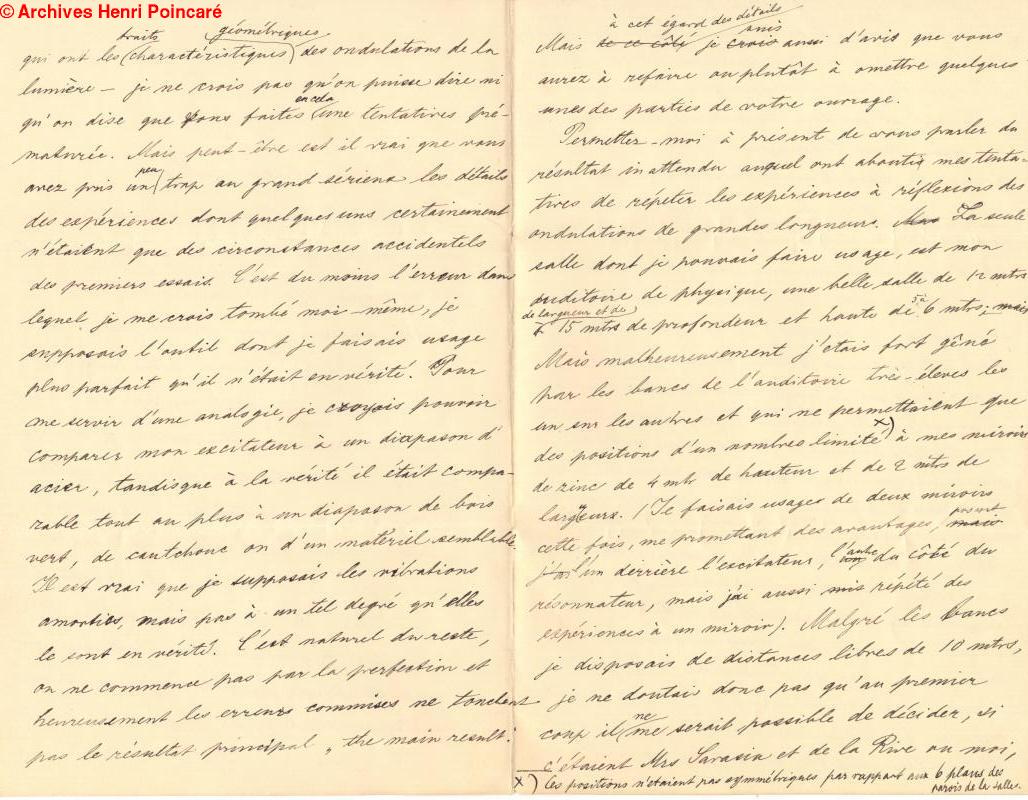 © Archives Henri Poincaré
traits géométriques
qui ont les (charactéristiques) des ondulations de la
lumière — je ne crois pas qu'on puisse dire ni
en cela
qu'on dise que vous faites une tentatives pré-
maturée. Mais peut-être est il vrai que vous
peu
avez pris un trop au grand sérieux les détails
des expériences dont quelques uns certainement
n'étaient que des circonstances accidentels
des premiers essais. C'est du moins l'erreur dans
lequel je me crois tombé moi-même, je
supposais l'outil dont je faisais usage
plus parfait qu'il n'était en vérité. Pour
me servir d'une analogie, je croyais pouvoir
comparer mon excitateur à un diapason d'
acier, tandisque à la vérité il était compa-
rable tout au plus à un diapason de bois
vert, de cautchouc ou d'un matériel semblable.
Il est vrai que je supposais les vibrations
amorties, mais pas à un tel degré qu'elles
le sont en vérité. C'est naturel du reste,
on ne commence pas par la perfection et
heureusement les erreurs commises ne touchent
pas le résultat principal, the main result.
à cet égard des détails
suis
Mais de ce côté je crois aussi d'avis que vous
aurez à refaire ou plutôt à omettre quelques
unes des parties de votre ouvrage.
Permettez-moi à présent de vous parler du
résultat inattendu auquel ont aboutis mes tenta-
tives de répéter les expériences à réflexions des
ondulations de grandes longueurs. La seule
salle dont je pouvais faire usage, est mon
auditoire de physique, une belle salle de 12 mtrs
de largueur et de
15 mtrs de profondeur et haute de 5 à 6 mtrs; mais
Mais malheureusement j'etais fort gêné
par les bancs de l'auditoire très-éleves les
un sur les autres et qui ne permettaient que
des positions d'un nombres limité x) à mes miroirs
de zinc de 4 mtr de hauteur et de 2 mtrs de
largeurs. (Je faisais usages de deux miroirs
cette fois, me promettant des avantages, posant mais
j'ai l'un derrière l'excitateur, l'autre du côté du
résonnateur, mais j'ai aussi mis répété des
expériences à un miroir). Malgré les bancs
je disposais de distances libres de 10 mtrs,
je ne doutais donc pas qu'au premier
ne
coup il me serait possible de décider, si
c'étaient Mrs Sarasin et de la Rive ou moi,
x) Ces positions n'étaient pas symmétriques par rapport aux 6 plans des
parois de la salles.